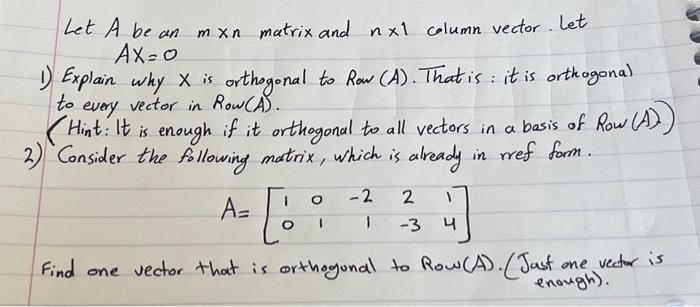 Let A be an m×n matrix and n×1 column vector. Let
AX=0
1) Explain why X is orthogonal to Row (A). That is : it is orthogonal
to every vector in Row(A).
(Hint: It is enough if it orthogonal to all vectors in a basis of Row (A))
2) Consider the following matrix, which is already in rref form.
A= [ 1 0 -2 2 1
0 1 1 -3 4 ]
Find one vector that is orthogonal to Row(A). (Just one vector is
enough).